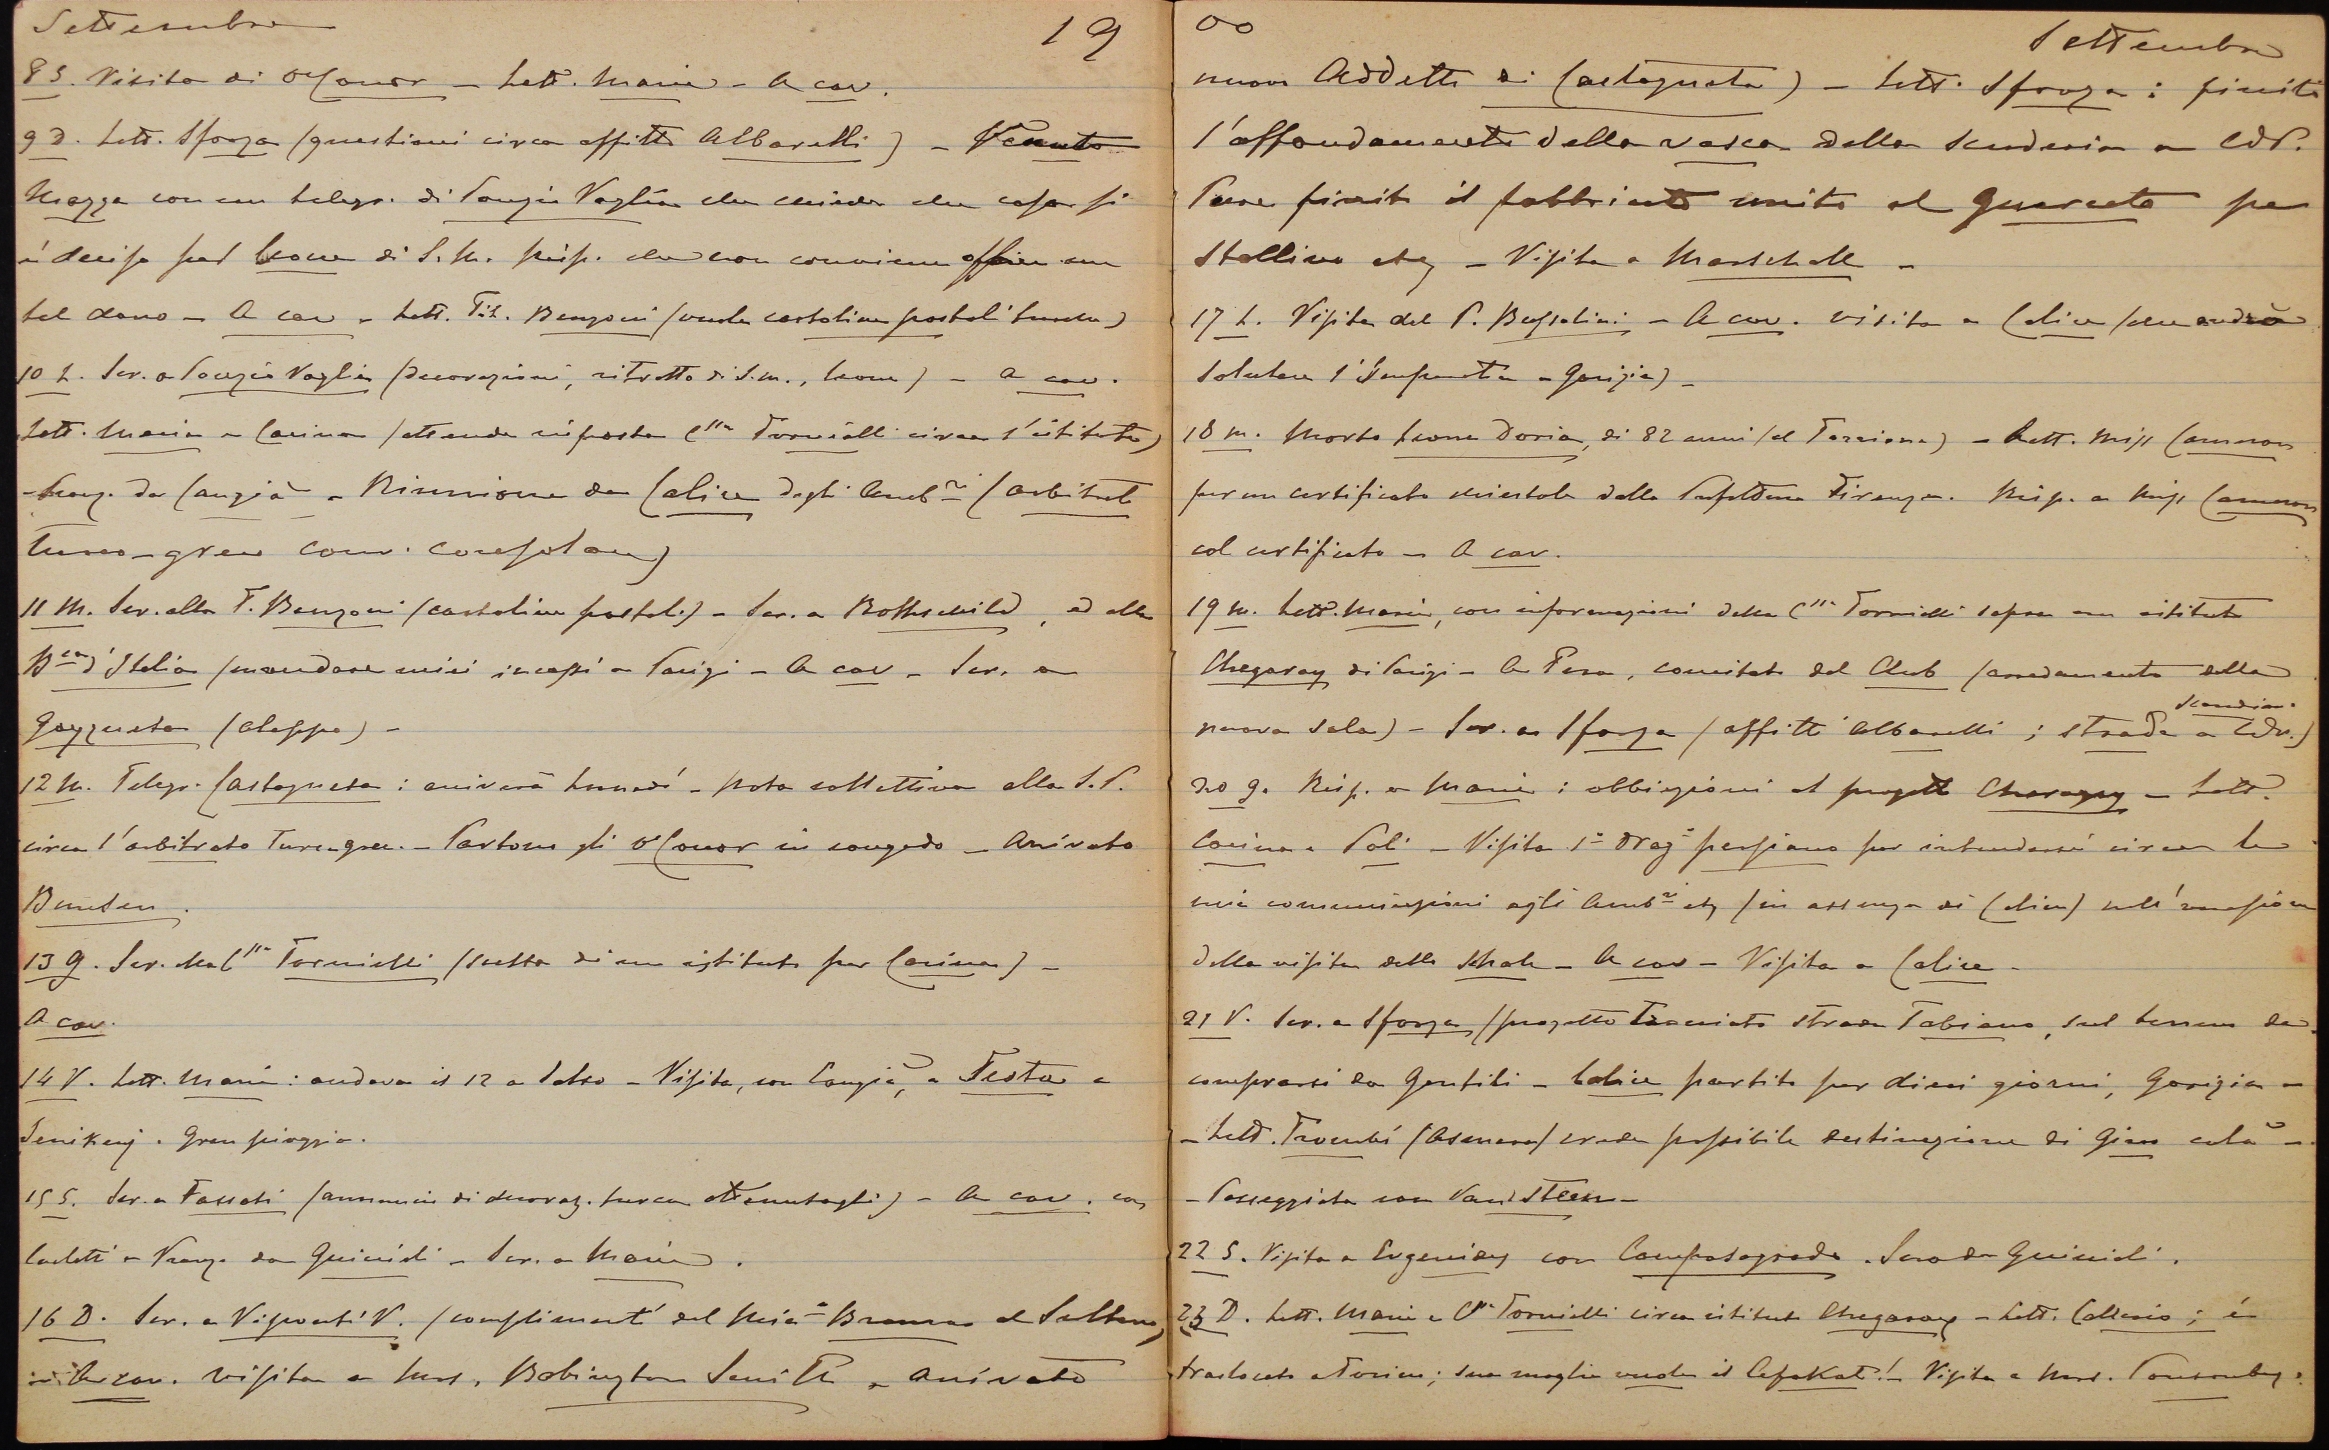 Settembre 19
8 S. Visita di O'Conor - Lett. Maria - A cav.
9 D. Lett. Sforza (questioni circa affitto Albarelli) - Venuto
Mazza con un telegr. di Ponzio Vaglia che chiede che cosa si
è deciso pel leone di S. M. Risp. che non conviene offrire un
tal dono - A cav - Lett. Tit. Benzoni (vuole cartoline postali turche)
10 L. Scr. a Ponzio Vaglia (decorazioni, ritratto di S. M., leone) - A cav.
Lett. Maria e Corina (attende risposta C.ssa Tornielli circa l'istituto)
- Pranz. da Cangià - Riunione da Calice degli Amb.ri (arbitrato
turco-greco conv. consolare)
11 M. Scr. alla T. Benzoni (cartoline postali) - Scr. a Rothschild, ed alla
B.ca d'Italia (mandare miei incassi a Parigi - A cav - Scr. a
Gazzuetta (Aleppo) -
12 M. Telegr. Castagneta: arriverà lunedì - Nota collettiva alla S. P.
circa l'arbitrato Turco-greco. - Partono gli O'Conor in congedo - Arrivato
Bunsen.
13 G. Scr. alla C.ssa Tornielli (scelta di un istituto per Corina) -
A cav.
14 V. Lett. Maria: andava il 12 a Salso - Visita, con Cangià, a Testa a
Jenikeuj. Gran pioggia.
15 S. Scr. a Fassati (annuncio di decoraz. turca ottenutagli) - A cav. con
Carletti - Pranz. da Guiccioli - Scr. a Maria.
16 D. Scr. a Visconti V. (complimenti del al Sultano)
- A cav. Visita a Mrs. Babington Smith - Arrivato
00 Settembre
nuovo Addetto di (Castagneta) - Lett. Sforza: finito
l'affondamento della vasca della scuderia a CdP.
Pure finito il fabbricato unito al Querceto per
stallino etc - Visita a Marschall -
17 L. Visita del P. Bussolini - A cav. visita a Calice (che andrà
salutare l'Imperatore a Gorizia) -
18 M. Morto Leone Doria, di 82 anni (al Torrione) - Lett. Miss Cameron
per un certificato della Firenze. Risp. a Miss Cameron
col certificato - A cav.
19 M. Lett. Maria, con informazioni della C.ssa Tornielli sopra un istituto
Chegaray di Parigi - A Pera, comitato del Club (arredamento della
nuova sala) - Scr. a Sforza (affitti Albarelli; strada scuderia a CdP.)
20 G. Risp. a Maria: obbiezioni al progetto Chegaray - Lett.
Corina e Poli - Visita 1° Drag.° persiano per intendersi circa le
mie comunicazioni agli Amb.ri etc (in assenza di Calice) nell'occasione
della visita dello Schah - A cav - Visita a Calice -
21 V. Scr. a Sforza (progetto tracciato strada Tabiano, sul terreno da
comprarsi da Gentili - Calice partito per dieci giorni, Gorizia -
- Lett. Trombi (Asmara) crede possibile destinazione di Gino colà -
- Passeggiata con Van d Steen -
22 S. Visita a Evgenidy con Camposagrado. Sera da Guiccioli.
23 D. Lett. Maria e C.ssa Tornielli circa istituto Chegaray - Lett. ; è
traslocato a Torino; sua moglie vuole il Cefakat! - Visita a Mrs. Ponsonby.